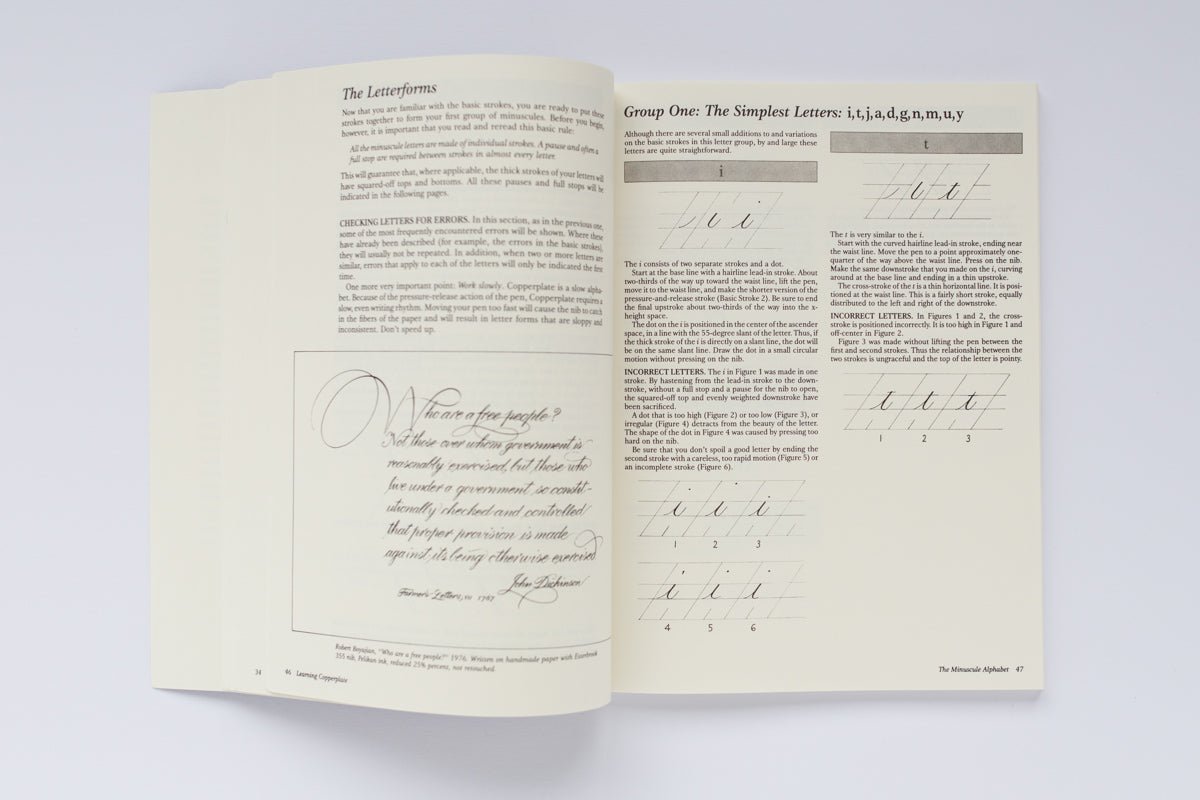 The Letterforms
Now that you are familiar with the basic strokes, you are ready to put these
strokes together to form your first group of minuscules. Before you begin,
however, it is important that you read and reread this basic rule:
All the minuscule letters are made of individual strokes. A pause and often a
full stop are required between strokes in almost every letter.
This will guarantee that, where applicable, the thick strokes of your letters will
have squared-off tops and bottoms. All these pauses and full stops will be
indicated in the following pages.
CHECKING LETTERS FOR ERRORS. In this section, as in the previous one,
some of the most frequently encountered errors will be shown. Where these
have already been described (for example, the errors in the basic strokes),
they will usually not be repeated. In addition, when two or more letters are
similar, errors that apply to each of the letters will only be indicated the first
time.
One more very important point: Work slowly. Copperplate is a slow alpha-
bet. Because of the pressure-release action of the pen, Copperplate requires a
slow, even writing rhythm. Moving your pen too fast will cause the nib to catch
in the fibers of the paper and will result in letter forms that are sloppy and
inconsistent. Don't speed up.
Who are a free people?
Not those over whom government is
reasonably exercised, but those who
live under a government so constit-
utionally checked and controlled
that proper provision is made
against its being otherwise exercised
John Dickinson
Farmer's Letters, VII 1767
Robert Boyajian, "Who are a free people?" 1976. Written on handmade paper with Esterbrook
355 nib, Pelikan ink; reduced 25% percent, not retouched.
34
46 Learning Copperplate
Group One: The Simplest Letters: i,t,j,a,d,g,n,m,u,y
Although there are several small additions to and variations
on the basic strokes in this letter group, by and large these
letters are quite straightforward.
i
i i
The i consists of two separate strokes and a dot.
Start at the base line with a hairline lead-in stroke. About
two-thirds of the way up toward the waist line, lift the pen,
move it to the waist line, and make the shorter version of the
pressure-and-release stroke (Basic Stroke 2). Be sure to end
the final upstroke about two-thirds of the way into the x-
height space.
The dot on the i is positioned in the center of the ascender
space, in a line with the 55-degree slant of the letter. Thus, if
the thick stroke of the i is directly on a slant line, the dot will
be on the same slant line. Draw the dot in a small circular
motion without pressing on the nib.
INCORRECT LETTERS. The i in Figure 1 was made in one
stroke. By hastening from the lead-in stroke to the down-
stroke, without a full stop and a pause for the nib to open,
the squared-off top and evenly weighted downstroke have
been sacrificed.
A dot that is too high (Figure 2) or too low (Figure 3), or
irregular (Figure 4) detracts from the beauty of the letter.
The shape of the dot in Figure 4 was caused by pressing too
hard on the nib.
Be sure that you don't spoil a good letter by ending the
second stroke with a careless, too rapid motion (Figure 5) or
an incomplete stroke (Figure 6).
i i i
1 2 3
i i i
4 5 6
t
t t
The t is very similar to the i.
Start with the curved hairline lead-in stroke, ending near
the waist line. Move the pen to a point approximately one-
quarter of the way above the waist line. Press on the nib.
Make the same downstroke that you made on the i, curving
around at the base line and ending in a thin upstroke.
The cross-stroke of the t is a thin horizontal line. It is posi-
tioned at the waist line. This is a fairly short stroke, equally
distributed to the left and right of the downstroke.
INCORRECT LETTERS. In Figures 1 and 2, the cross-
stroke is positioned incorrectly. It is too high in Figure 1 and
off-center in Figure 2.
Figure 3 was made without lifting the pen between the
first and second strokes. Thus the relationship between the
two strokes is ungraceful and the top of the letter is pointy.
t t t
1 2 3
The Minuscule Alphabet 47